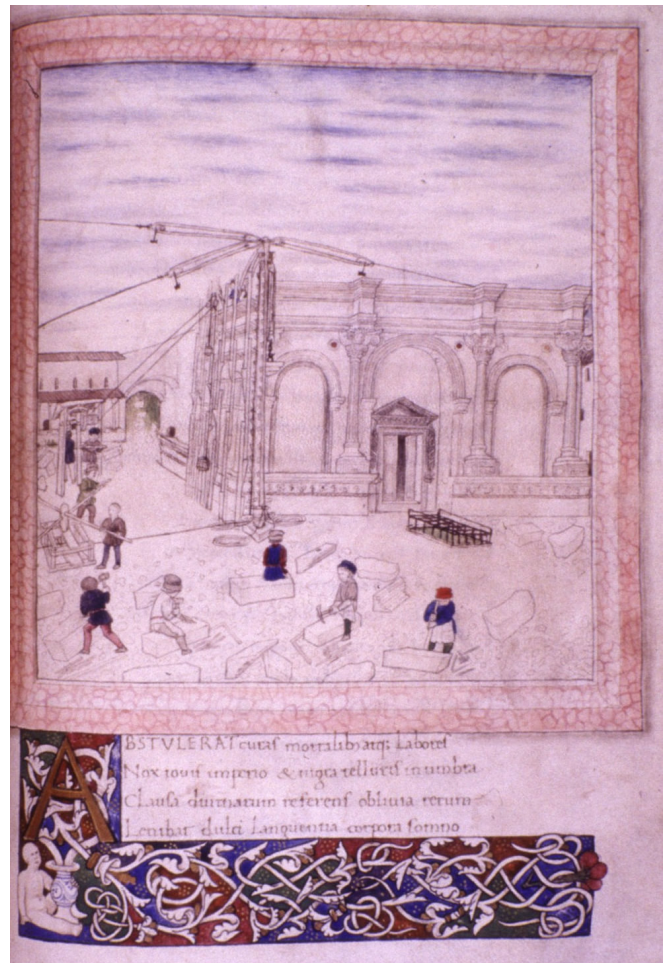 ABSTVLERAT curas mortalib; atq; Labores
Nox iouis imperio & nigra telluris in umbra
Clausa diurnarum referens obliuia rerum
Lenibat dulci Languentia corpora somno